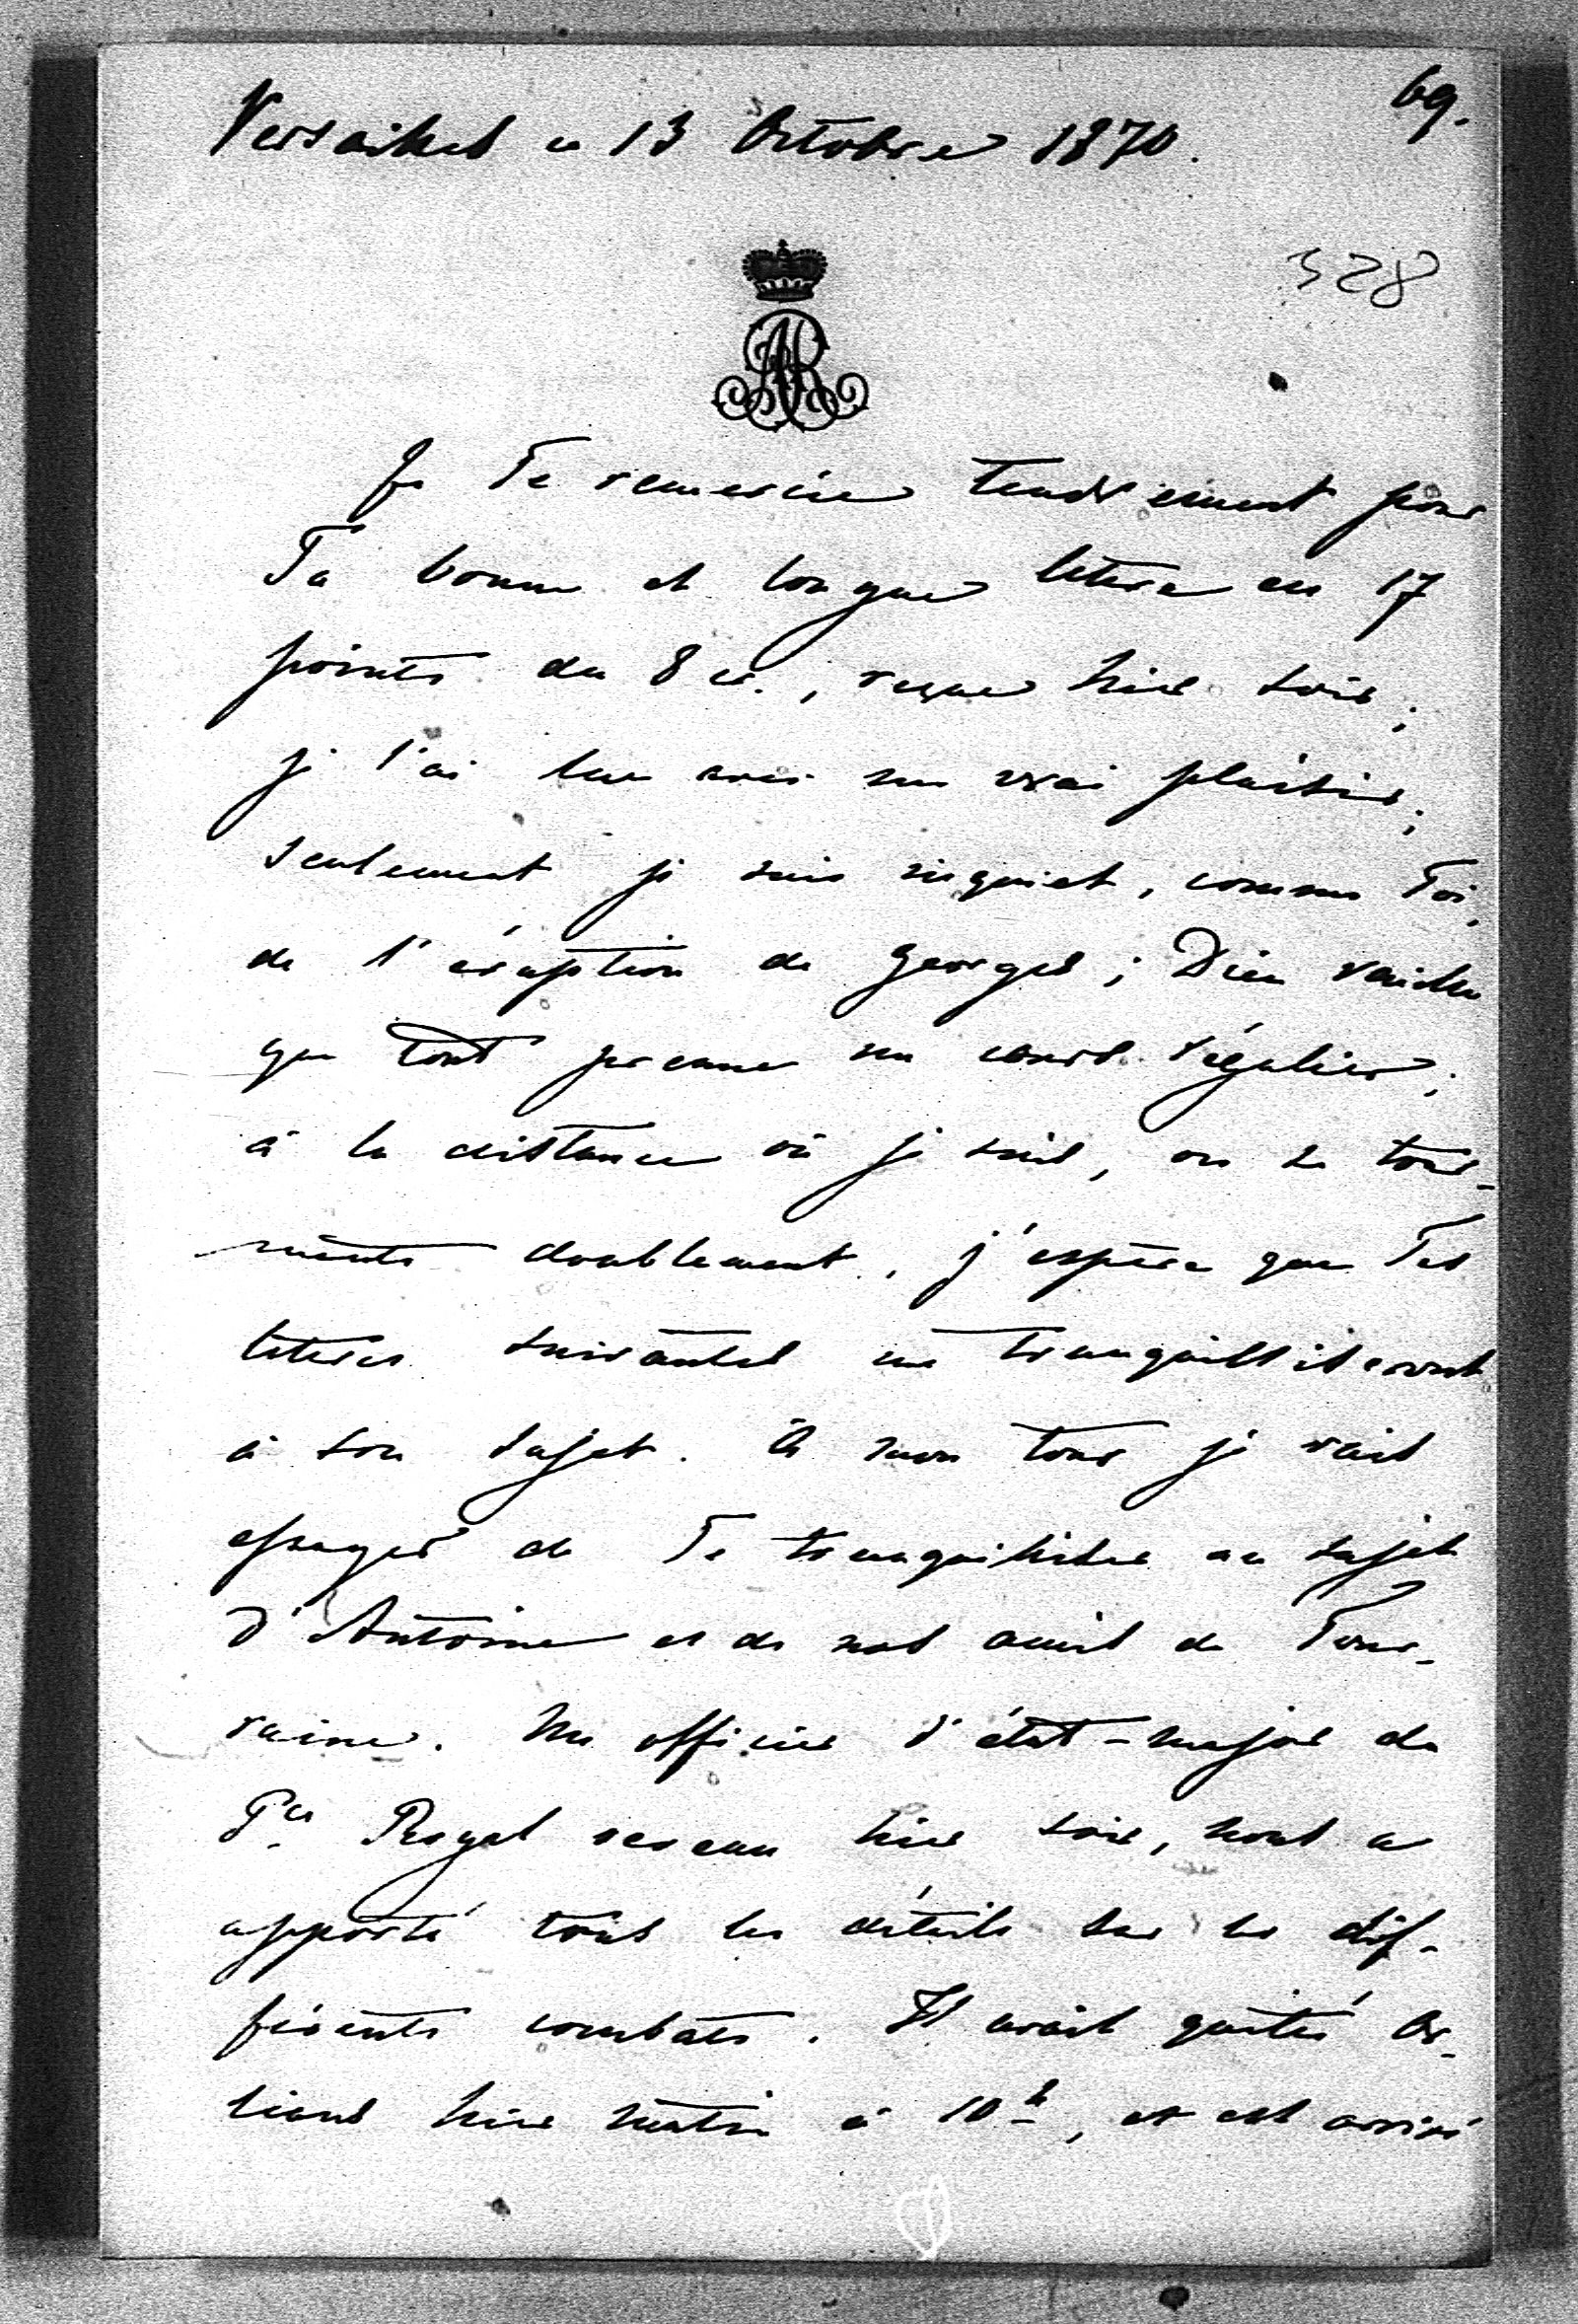 69.
Versailles ce 13 Octobre 1870.
328
AR
Je Te remercie tendrement pour
Ta bonne et longue lettre en 17
points du 8 ct., reçue hier soir;
je l'ai lue avec un vrai plaisir;
seulement je suis inquiet, comme Toi,
de l'éruption de Georges; Dieu veuille
que tout prenne un cours régulier;
à la distance où je suis, on se tour-
mente doublement, j'espère que Tes
lettres suivantes me tranquilliseront
à son sujet. A mon tour je vais
essayer de Te tranquilliser au sujet
d'Antoine et de nos amis de Tour-
raine. Un officier d'état-major du
Pce Royal revenu hier soir, nous a
apporté tous les détails sur les dif-
férents combats. Il avait quitté Or-
léans hier matin à 10h, et est arrivé